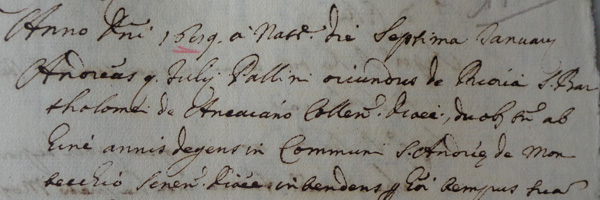 Anno Dñi 1659. a Natt.e die Septima January
Andreas q. Julij Pallini oriundus de Prioria S. Bar
tholomei de Ancaiano Collen. Diœc., duob. tñ ab
hinc annis degens in Communi S. Andreę de Mon
tecchio Senen. Diœc. intendens
tempus suæ